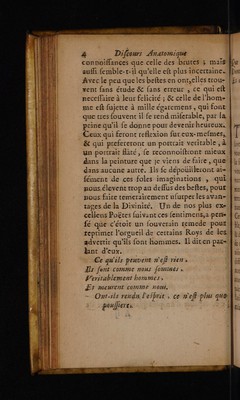 4 Discours Anatomique
connoissances que celle des brutes ; mais
aussi semble-t-il qu'elle est plus incertaine.
Avec le peu que les bestes en ont, elles trou-
vent sans étude & sans erreur , ce qui est
necessaire à leur felicité ; & celle de l'hom-
me est sujette à mille égarement , qui font
que tres souvent il se rend miserable, par la
peine qu'il se donne pour devenir heureux.
Ceux qui feront reflexion sur eux-mesmes,
& qui prefereront un portrait veritable , à
un portrait flaté , se reconnoistront mieux
dans la peinture que je viens de faire , que
dans aucune autre. Ils se dépoüilleront ai-
sément de ces foles imaginations , qui
nous élevent trop au dessus des bestes, pour
nous faire temerairement usurper les avan-
tages de la Divinité. Un de nos plus ex-
cellens Poëtes suivant ces sentimens, a pen-
sé que c'étoit un souverain remede pour
reprimer l'orgueil de certains Roys de les
advertir qu'ils sont hommes. Il dit en par-
lant d'eux.
Ce qu'ils peuvent n'est rien.
Ils sont comme nous sommes.
Veritablement hommes.
Et meurent comme nous.
Ont-ils rendu l'esprit , ce n'est plus que
poussiere.